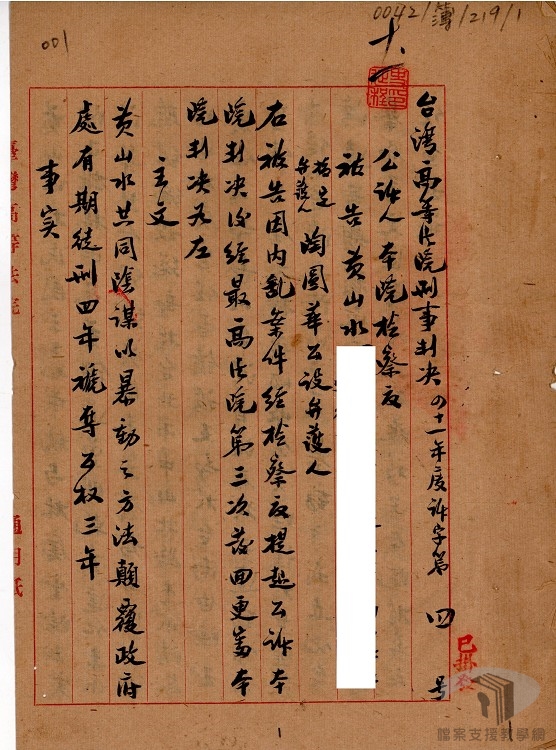 0042/簿/219/1
001
十
台湾高等法院刑事判决 四十一年度訴字第 四 號
公訴人 本院检察官
被告 黄山水
指定弁護人 陶園華公設弁護人
右被告因内乱案件经检察官提起公訴本
院判决後经最高法院第三次发回更審本
院判决如左
主文
黄山水共同陰謀以暴動之方法顛覆政府
處有期徒刑四年褫奪公权三年
事实
臺灣高等法院
通用紙
1
檔案支援教學網